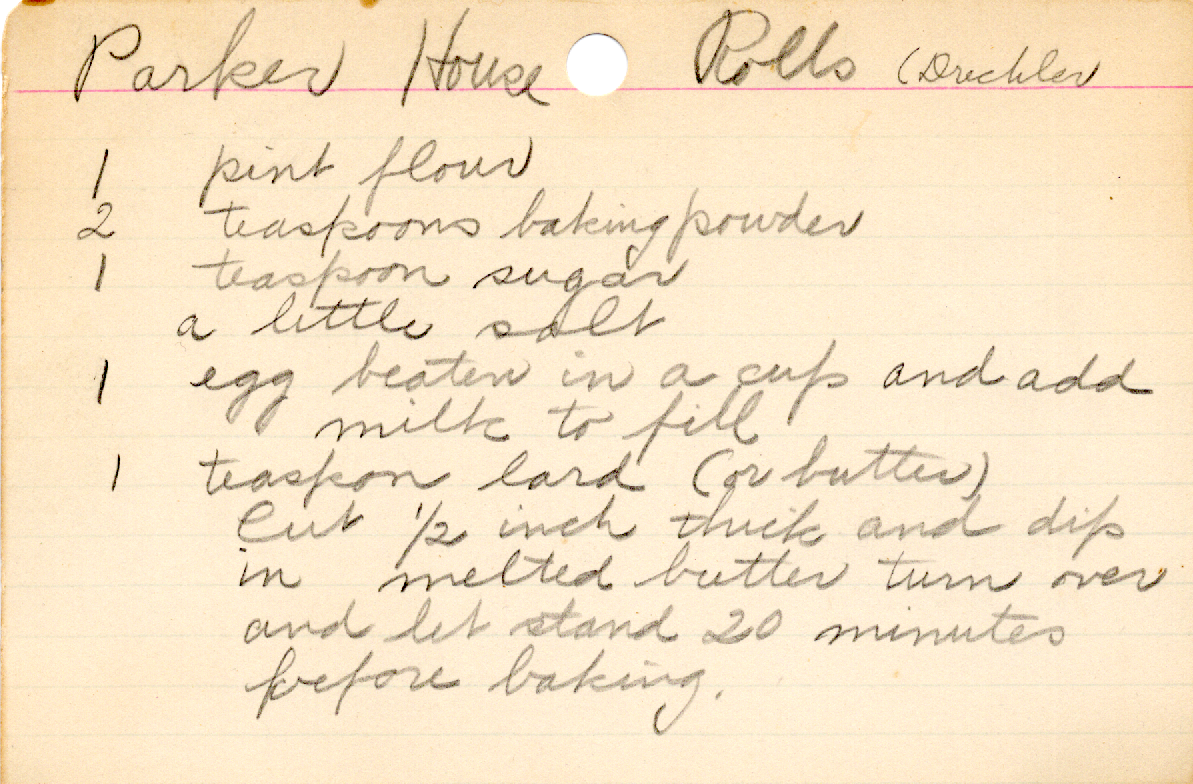 Parker House Rolls (Drechler
1 pint flour
2 teaspoons baking powder
1 teaspoon sugar
a little salt
1 egg beaten in a cup and add
milk to fill
1 teaspon lard (or butter)
Cut 1/2 inch thick and dip
in melted butter turn over
and let stand 20 minutes
before baking.